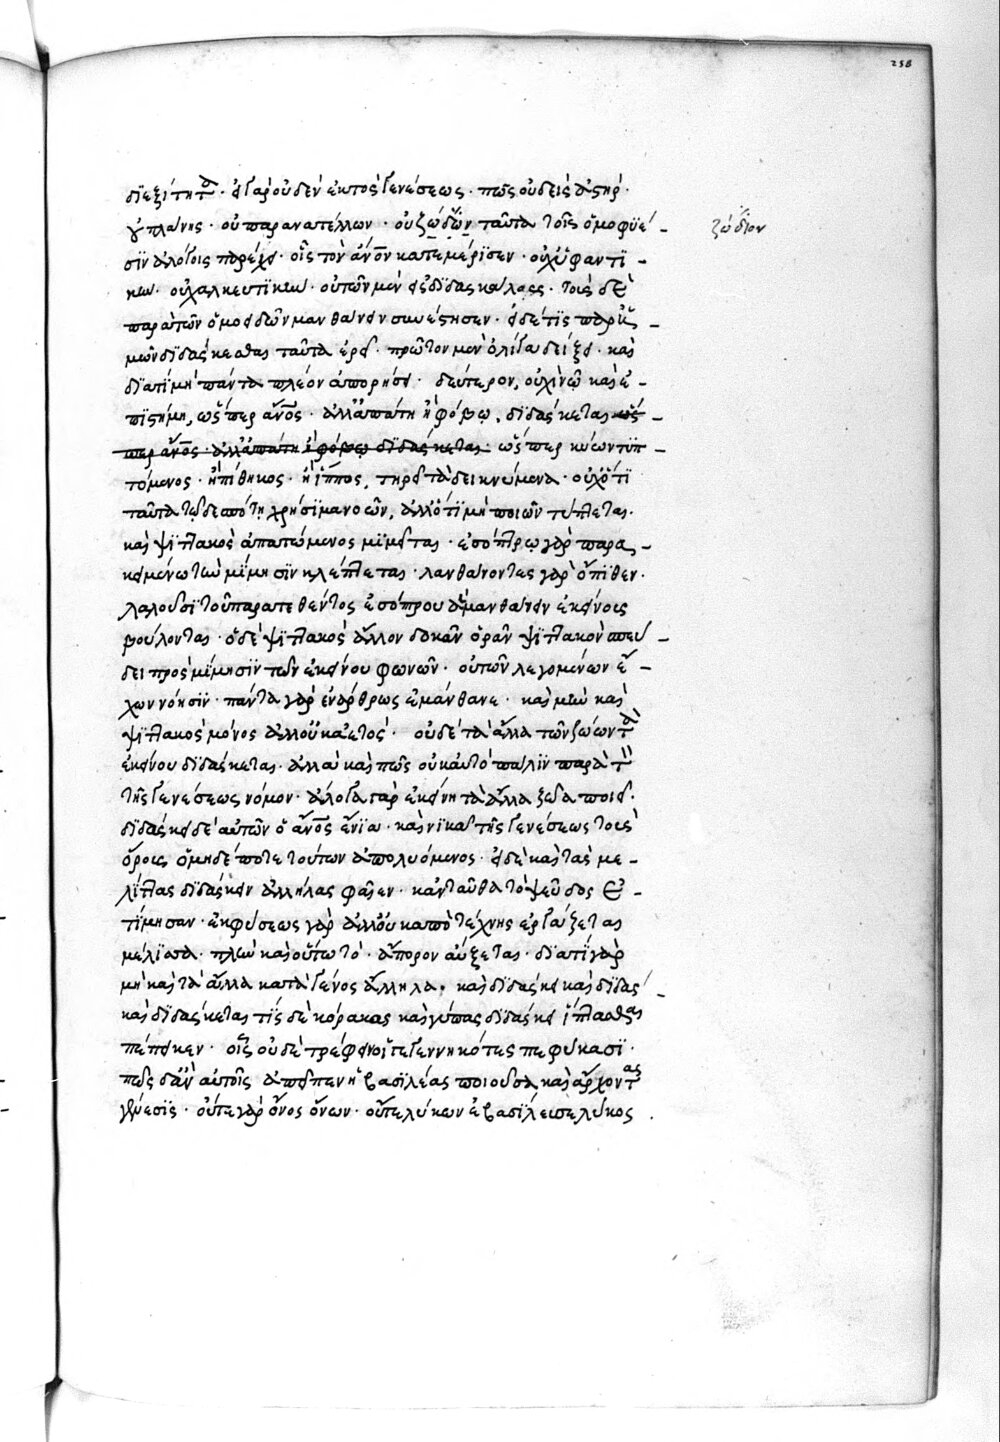 258
διεξίτητ. εἰ γὰρ οὐδὲν ἐκτὸς γενέσεως. πῶς οὐδεὶς ἀστὴρ.
οὐ πλάνης. οὐ παρανατέλλων. οὐ ζώδιον ταῦτα τοῖς ὁμοφυέ
ζώδιον
σιν ἀλόγοις παρέχει. οἷς τὸν ἄνον κατεμέρισεν. οὐχ ὑφαντι
κὴν. οὐ χαλκευτικὴν. οὐ τῶν μὲν διδασκάλους. τοὺς δὲ
παρὰ τῶν ὁμοειδῶν μανθάνειν συνέστησεν. εἰ δέ τις παρ' ἡ
μῶν διδάσκεσθαι ταῦτα ἐρεῖ. πρῶτον μὲν ὀλίγα δείξει. καὶ
διατί μὴ πάντα πλέον ἀπορήσει. δεύτερον, οὐχὶ νῷ καὶ ἐ
πιστήμη, ὥσπερ ἄνος. ἀλλ' ἀπάτη ἢ φόβῳ, διδάσκεται ὥσ
περ ἄνος. ἀλλ' ἀπάτη ἢ φόβῳ διδάσκεται. ὥσπερ κύων τυπ
τόμενος. ἢ πίθηκος. ἢ ἵππος, τηρεῖ τὰ δεικνύμενα. οὐχ ὅτι
ταῦτα τῷ δεσπότῃ χρήσιμα νοῶν, ἀλλ' ὅτι μὴ ποιῶν τύπτεται.
καὶ ψιττακὸς ἀπατώμενος μιμεῖται. ἐσόπτρῳ γὰρ παρα
κειμένω τὴν μίμησιν κλέπτεται. λανθάνοντες γὰρ ὄπισθεν.
λαλοῦσι τοῦ παρατεθέντος ἐσόπτρου ἃ μανθάνειν ἐκείνοις
βούλονται. ὁ δὲ ψιττακὸς ἄλλον δοκῶν ὁρᾶν ψιττακὸν σπεύ
δει πρὸς μίμησιν τῶν ἐκείνου φωνῶν. οὐ τῶν λεγομένων ἔ
χων νόησιν. πάντα γὰρ ἐνάρθρως ἐμάνθανε. καὶ μὴν καὶ
ψιττακὸς μόνος ἀλλ' οὐκ ἀετὸς. οὐδὲ τὰ ἄλλα τῶν ζώων τ
ἐκείνου διδάσκεται. ἀλλὰ καὶ πῶς οὐκ αὐτὸ πάλιν παρὰ τ
τῆς γενέσεως νόμον. ἄλογα γὰρ ἐκείνη τὰ ἄλλα ζῷα ποιεῖ.
διδάσκει δὲ αὐτῶν ὁ ἄνος ἔνια. καὶ νικᾷ τῆς γενέσεως τοὺς
ὅρους, ὁ μηδέποτε τούτων ἀπολυόμενος. εἰ δὲ καὶ τὰς με
λίττας διδάσκειν ἀλλήλας φαῖεν. κἀνταῦθα τὸ ψεῦδος ἐ
τίμησαν. ἐκ φύσεως γὰρ ἀλλ' οὐκ ἀπὸ τέχνης ἐργάζεται
μέλισσα. πλὴν καὶ οὕτω τὸ. ἄπορον αὔξεται. διατί γὰρ
μὴ καὶ τὰ ἄλλα κατὰ γένος ἄλληλα. καὶ διδάσκει καὶ διδάσ
καὶ διδάσκεται τίς δὲ κόρακας καὶ γύπας διδάσκει ἵπτασθαι
πέπεικεν. οἷς οὐδὲ τρέφειν οἵ τε γεννηκότες πεφύκασι.
πῶς δ' ἂν αὐτοῖς ἀποστείλη βασιλέας ποιοῦσα καὶ ἄρχοντας
γένεσις. οὔτε γὰρ ὄνος ὄνων. οὔτε λύκων ἐβασίλευσε λύκος.